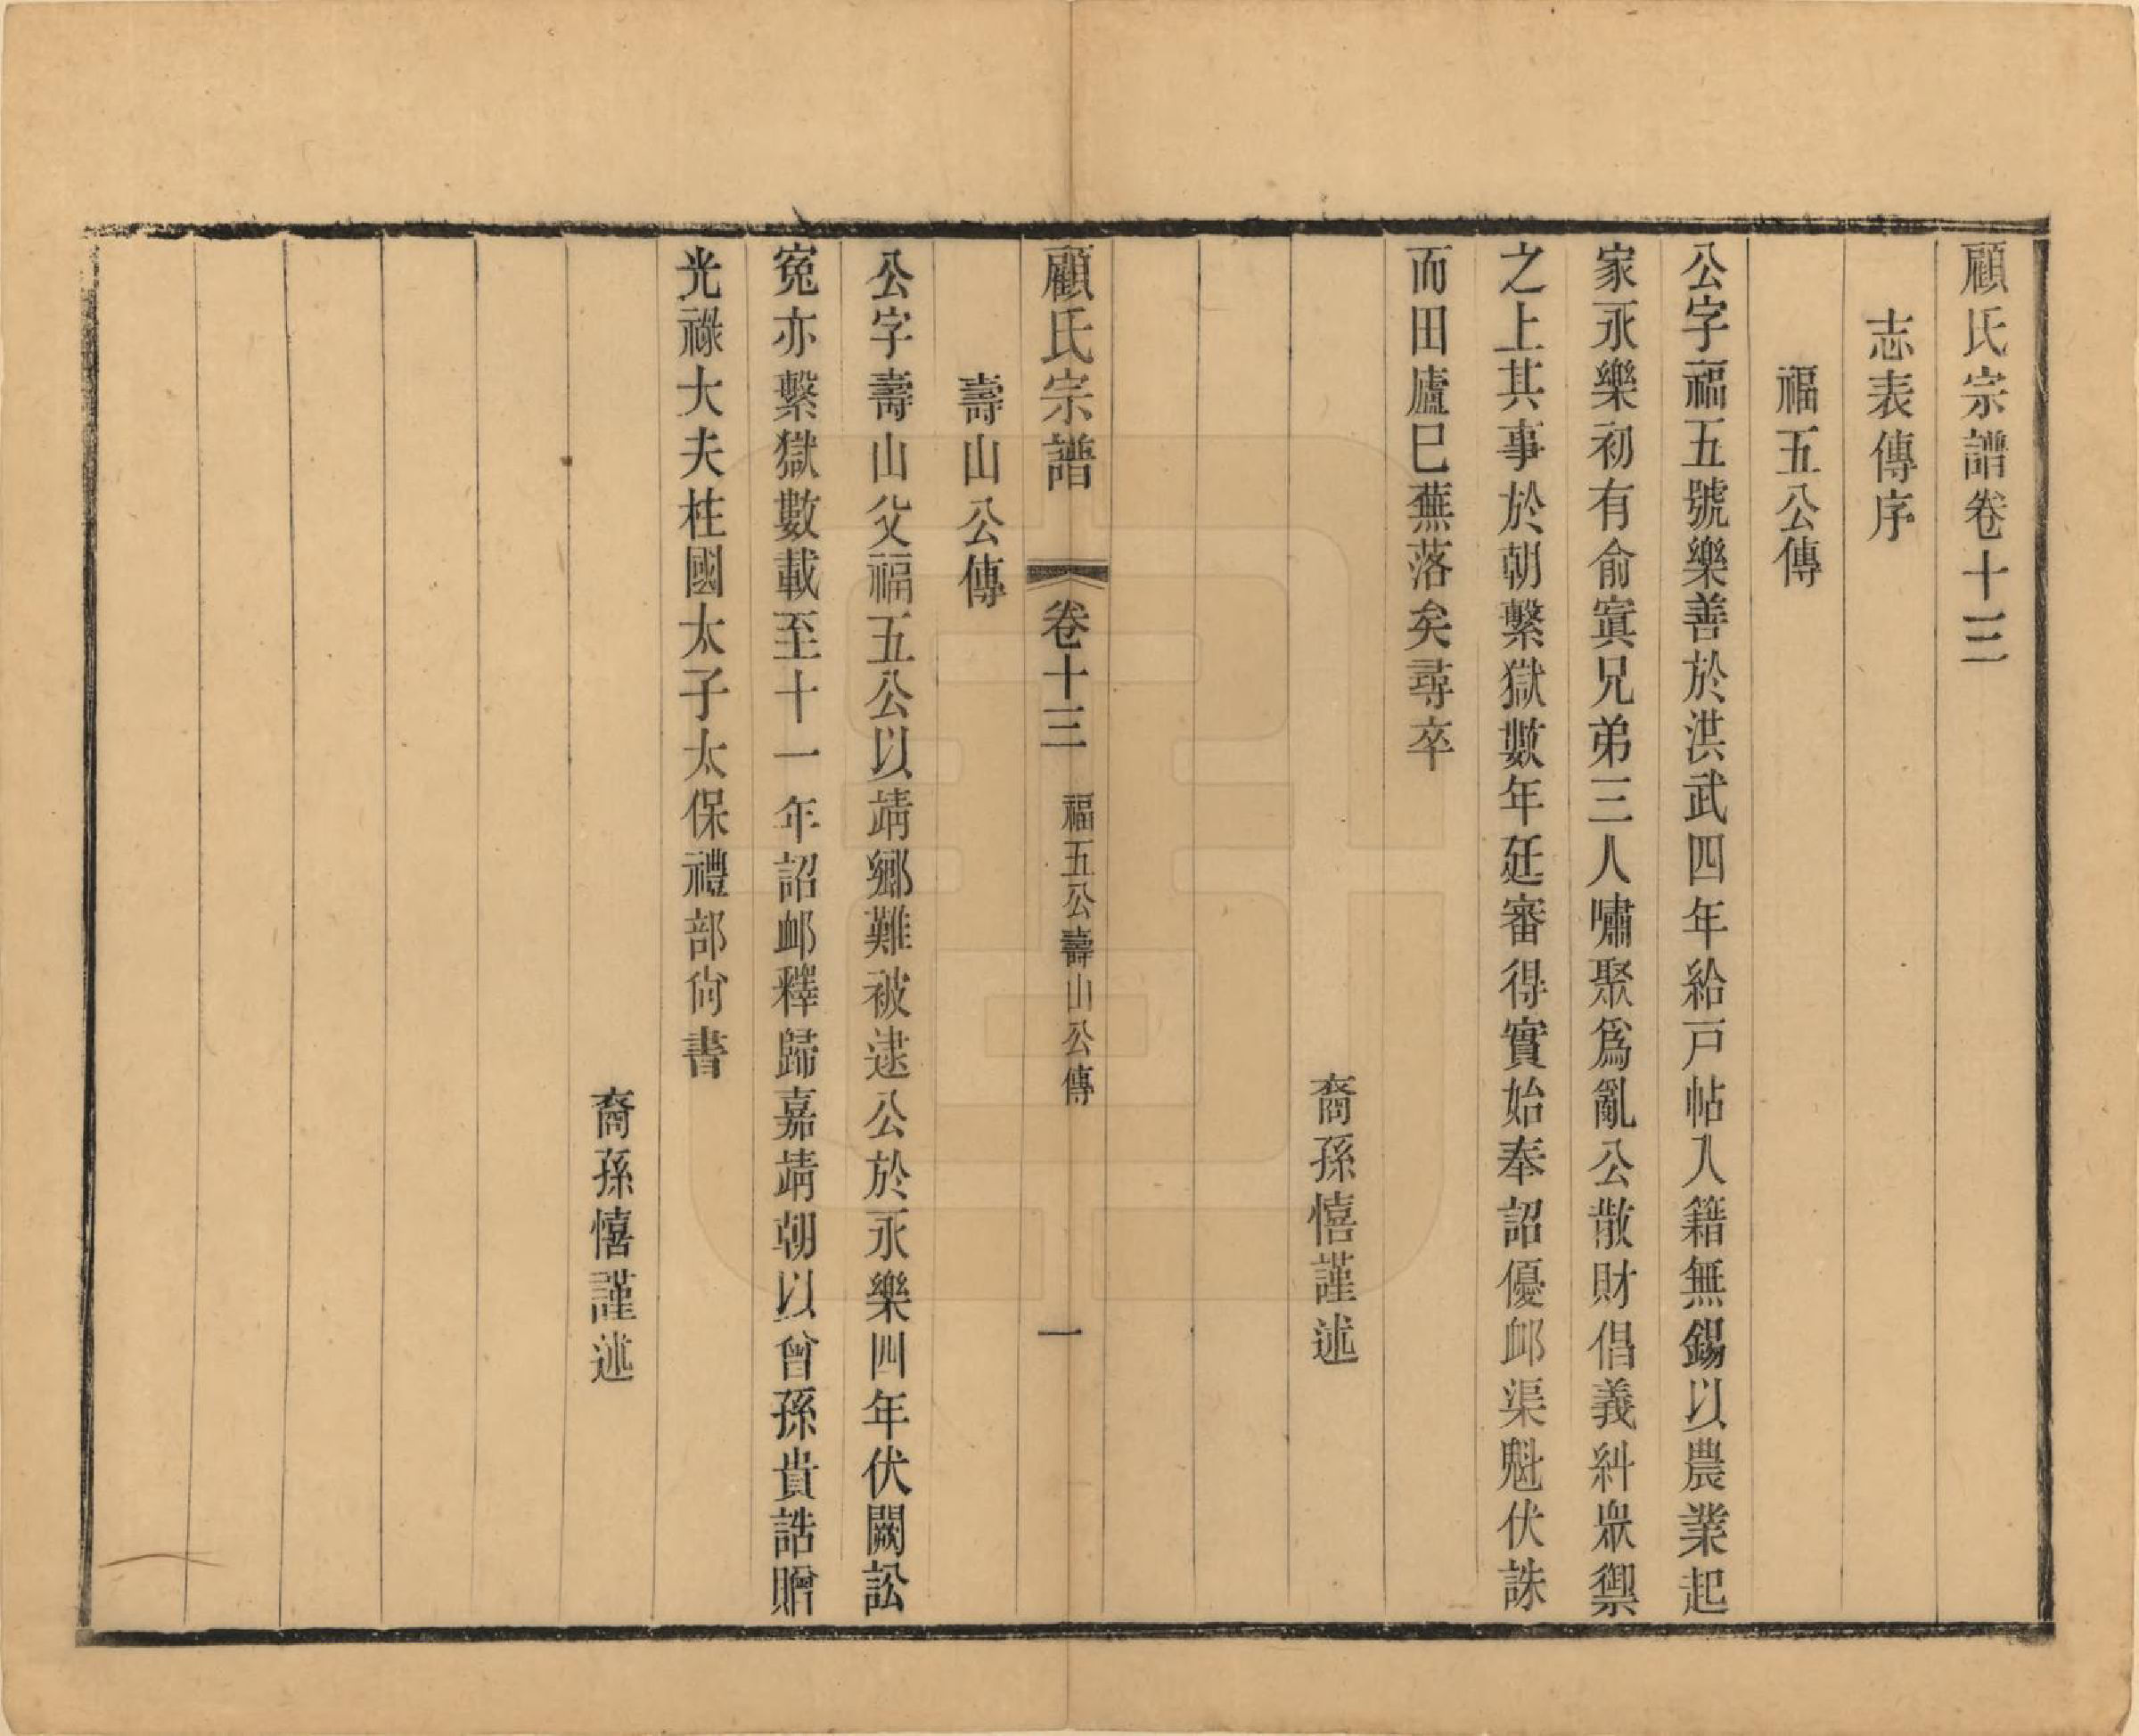 顧氏宗譜卷十三
志表傳序
福五公傳
公字福五號樂善於洪武四年給戸帖入籍無錫以農業起
家永樂初有俞寘兄弟三人嘯聚爲亂公散財倡義糾衆禦
之上其事於朝繫獄數年廷審得實始奉詔優邺渠魁伏誅
而田廬巳蕪落矣尋卒
裔孫憘謹述
顧氏宗譜 卷十三 福五公壽山公傳 一
壽山公傳
公字壽山父福五公以靖鄉難被逮公於永樂四年伏闕訟
寃亦繫獄數載至十一年詔邺釋歸嘉靖朝以曾孫貴誥贈
光祿大夫柱國太子太保禮部尙書
裔孫憘謹述